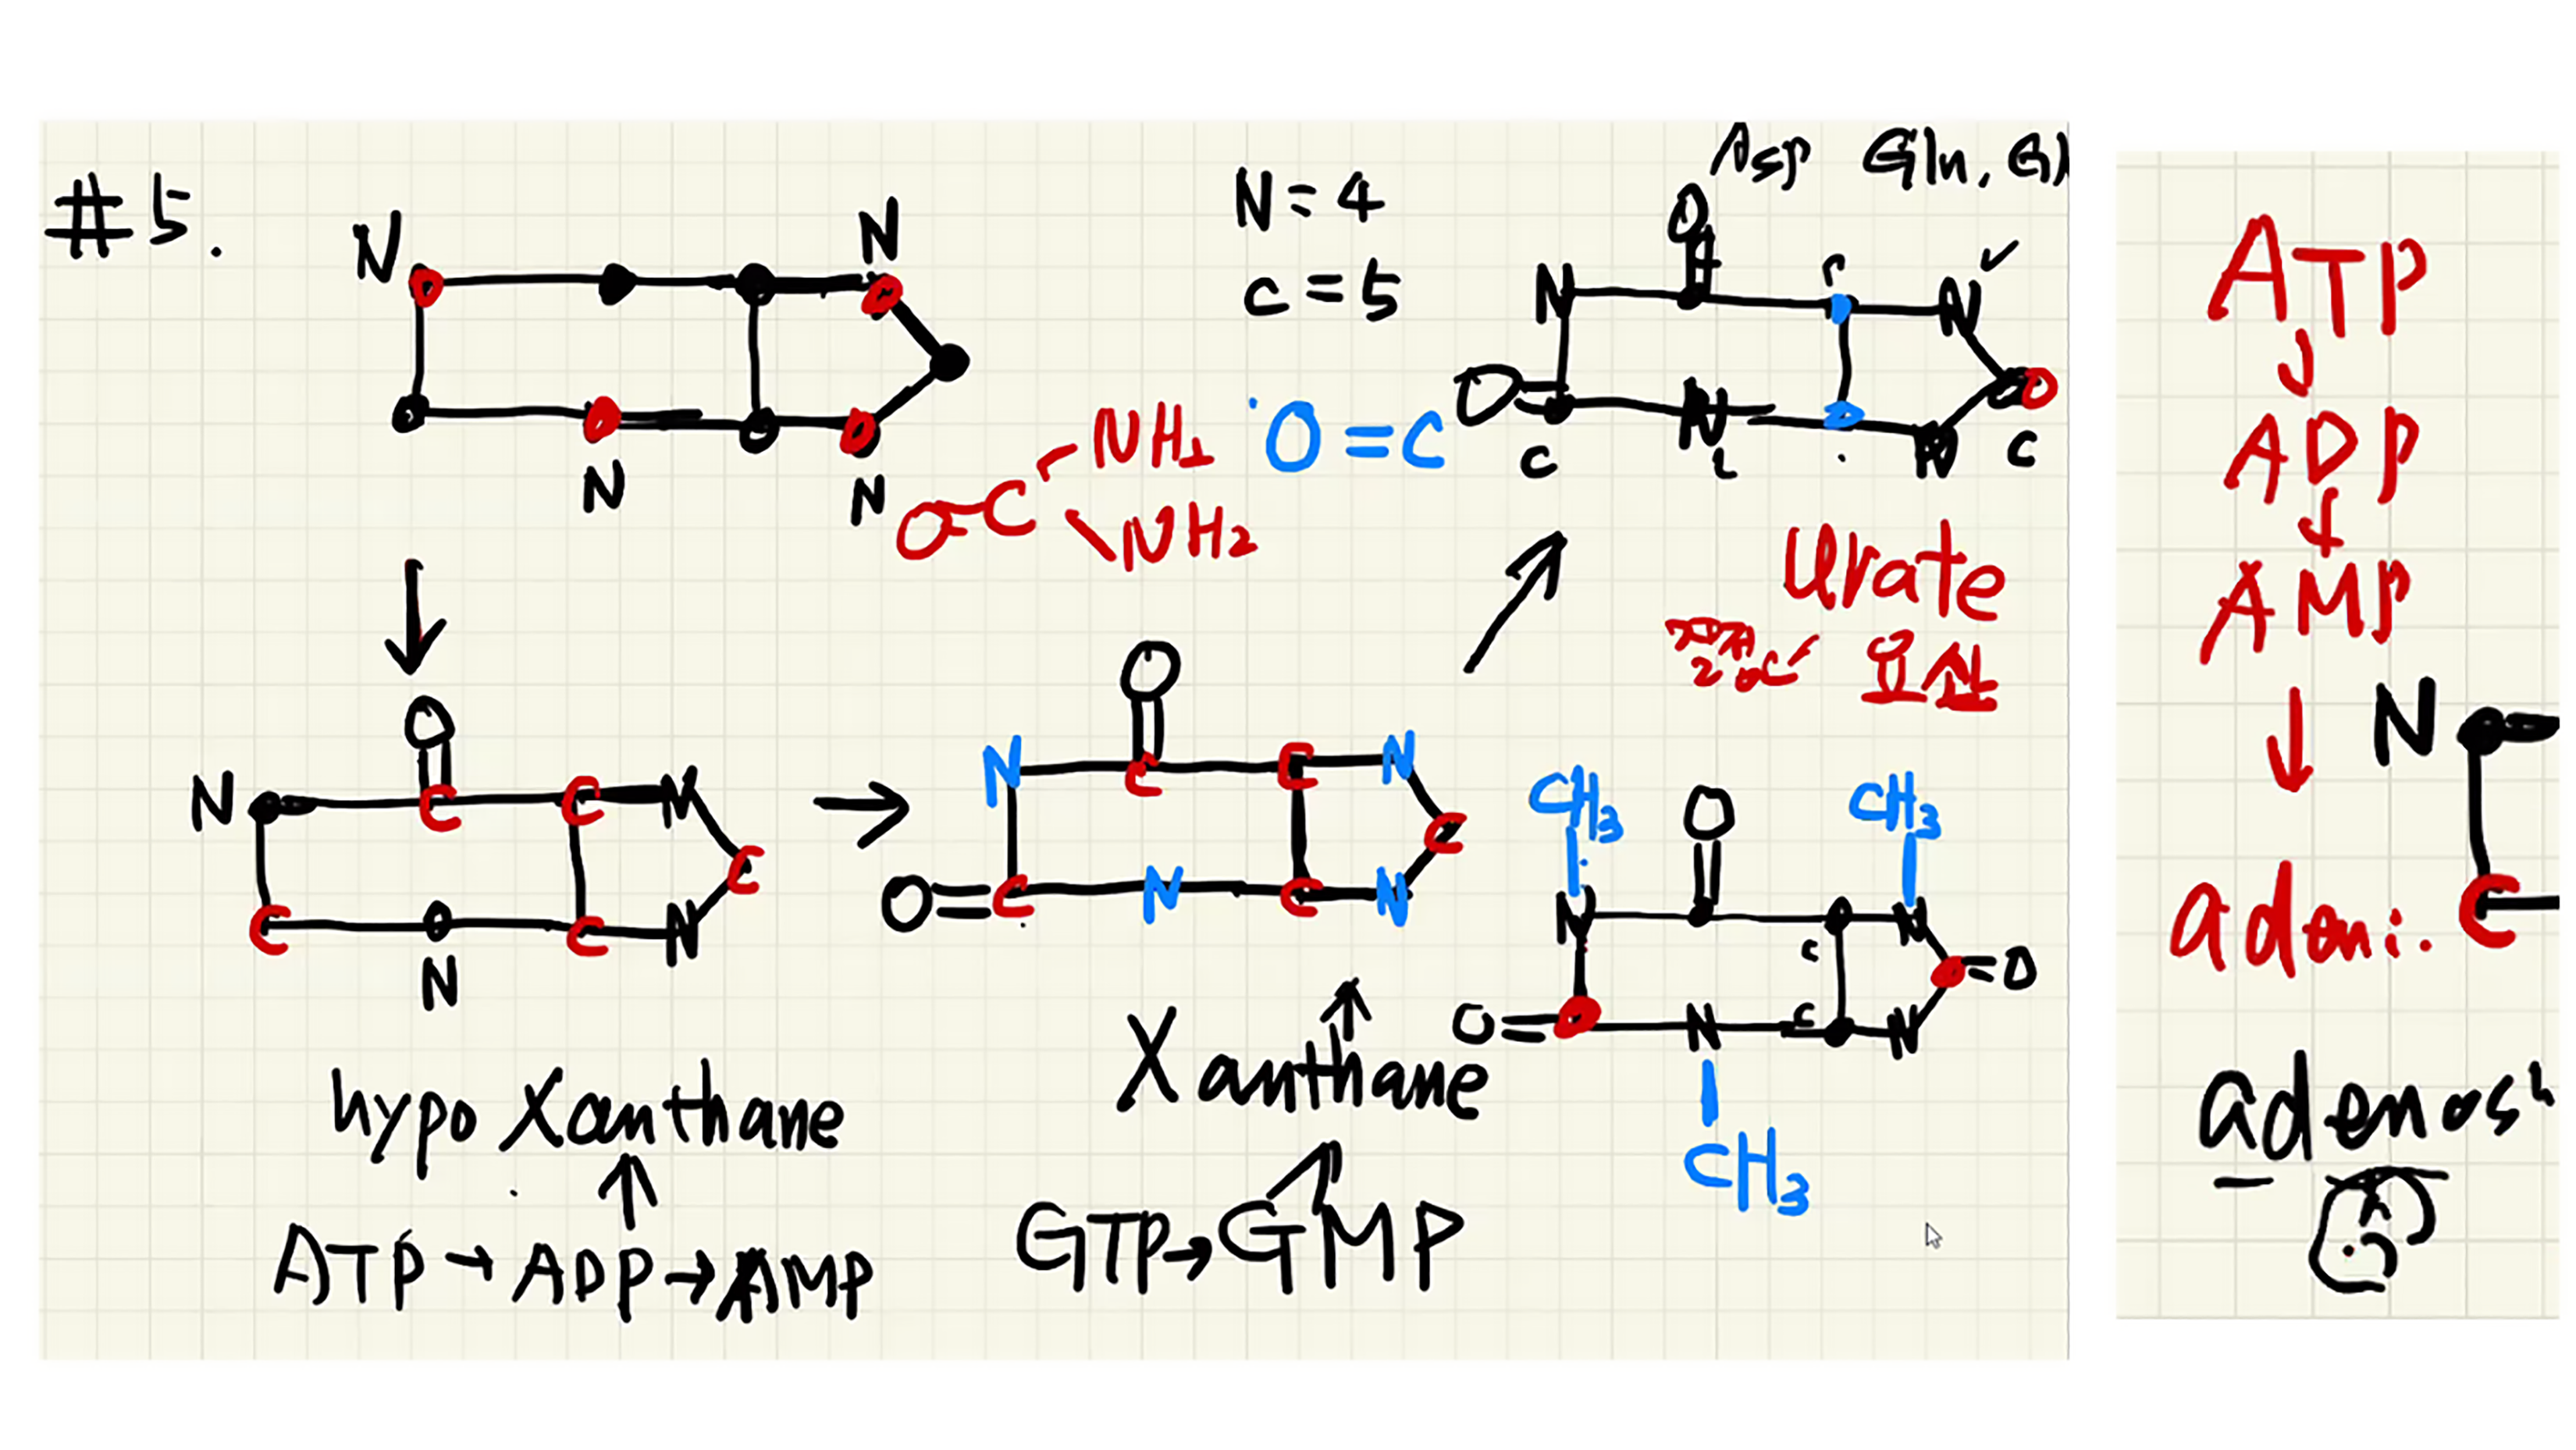 #5.
N
N
N
N
N = 4
C = 5
Asp Gln,
O
N
N
O
C
N
N
C
O = C
O C NH2
NH2
Urate
요산
O
N
C
C
N
C
C
N
C
N
hypo Xanthane
ATP → ADP → AMP
O
N
C
C
N
C
O
C
N
C
N
Xanthane
GTP → GMP
CH3
O
CH3
N
C
N
=O
O=
N
C
N
CH3
ATP
↓
ADP
↓
AMP
↓
N
C
adeni.